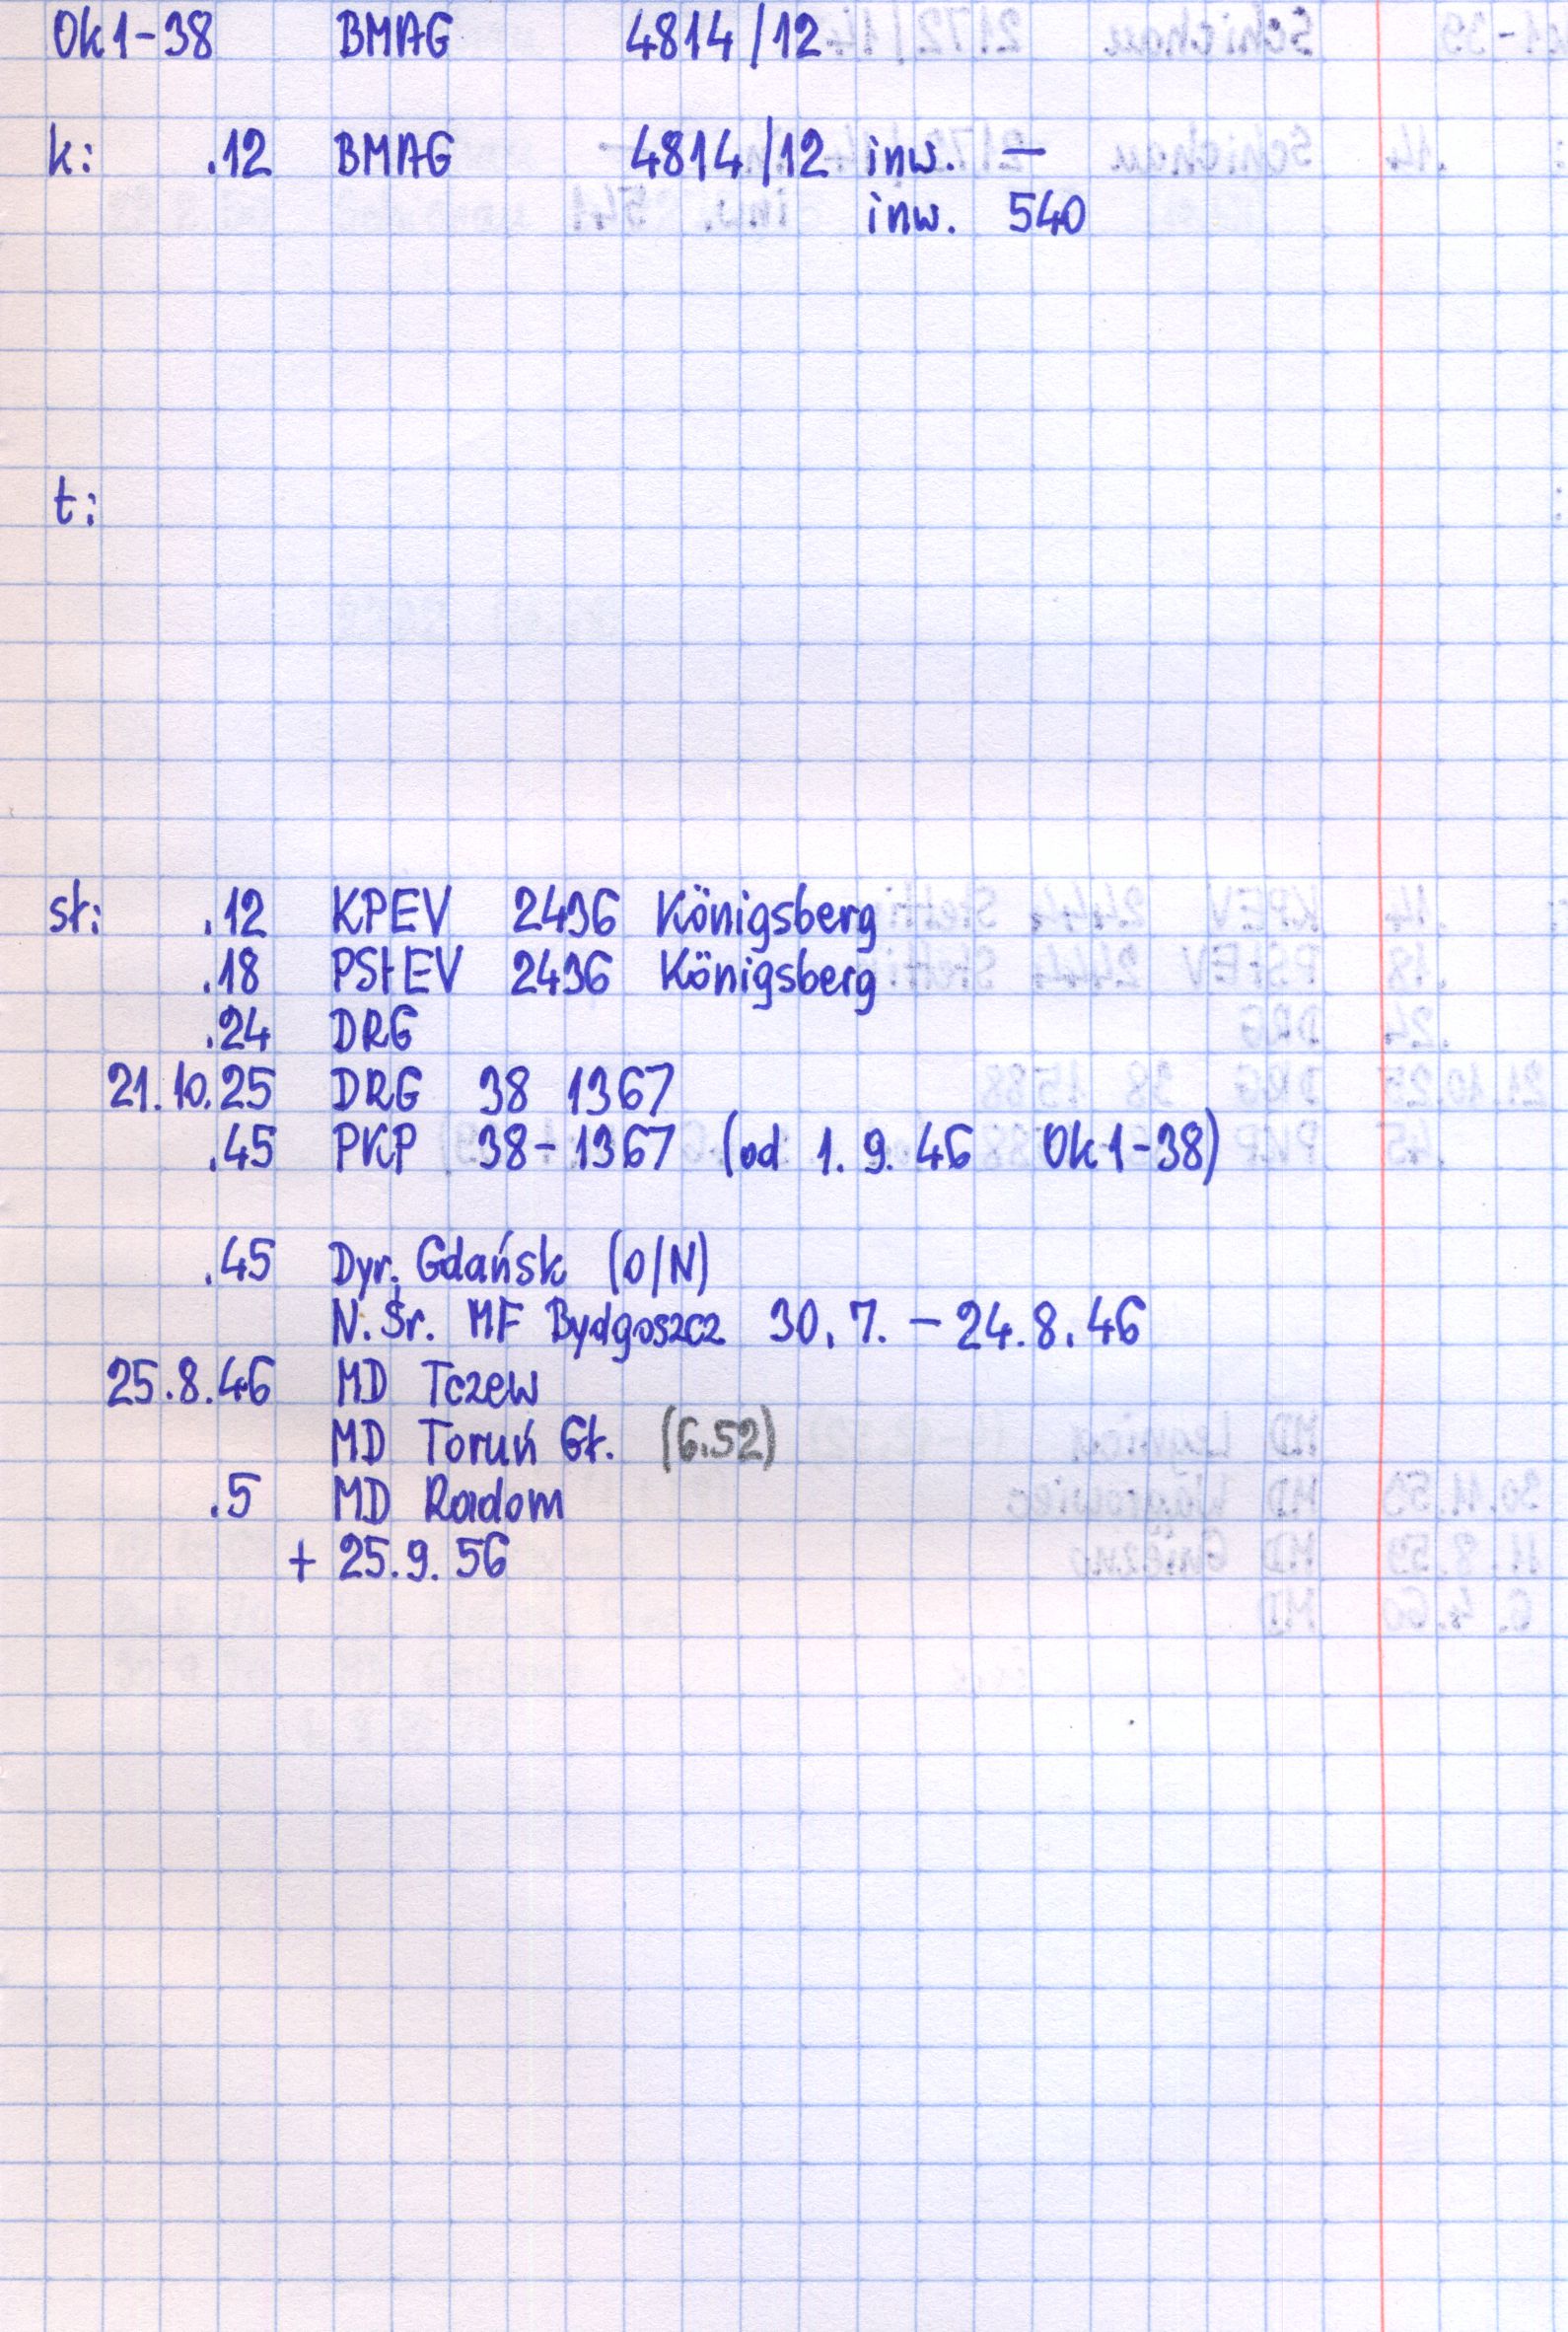 Ok1-38 BMAG 4814/12
k: .12 BMAG 4814/12 inw. —
inw. 540
t:
st: .12 KPEV 2436 Königsberg
.18 PStEV 2436 Königsberg
.24 DRG
21.10.25 DRG 38 1367
.45 PKP 38-1367 (od 1.9.46 Ok1-38)
.45 Dyr. Gdańsk (O/N)
N.Śr. MF Bydgoszcz 30.7. – 24.8.46
25.8.46 MD Tczew
MD Toruń Gł. (6.52)
.5 MD Radom
+ 25.9.56